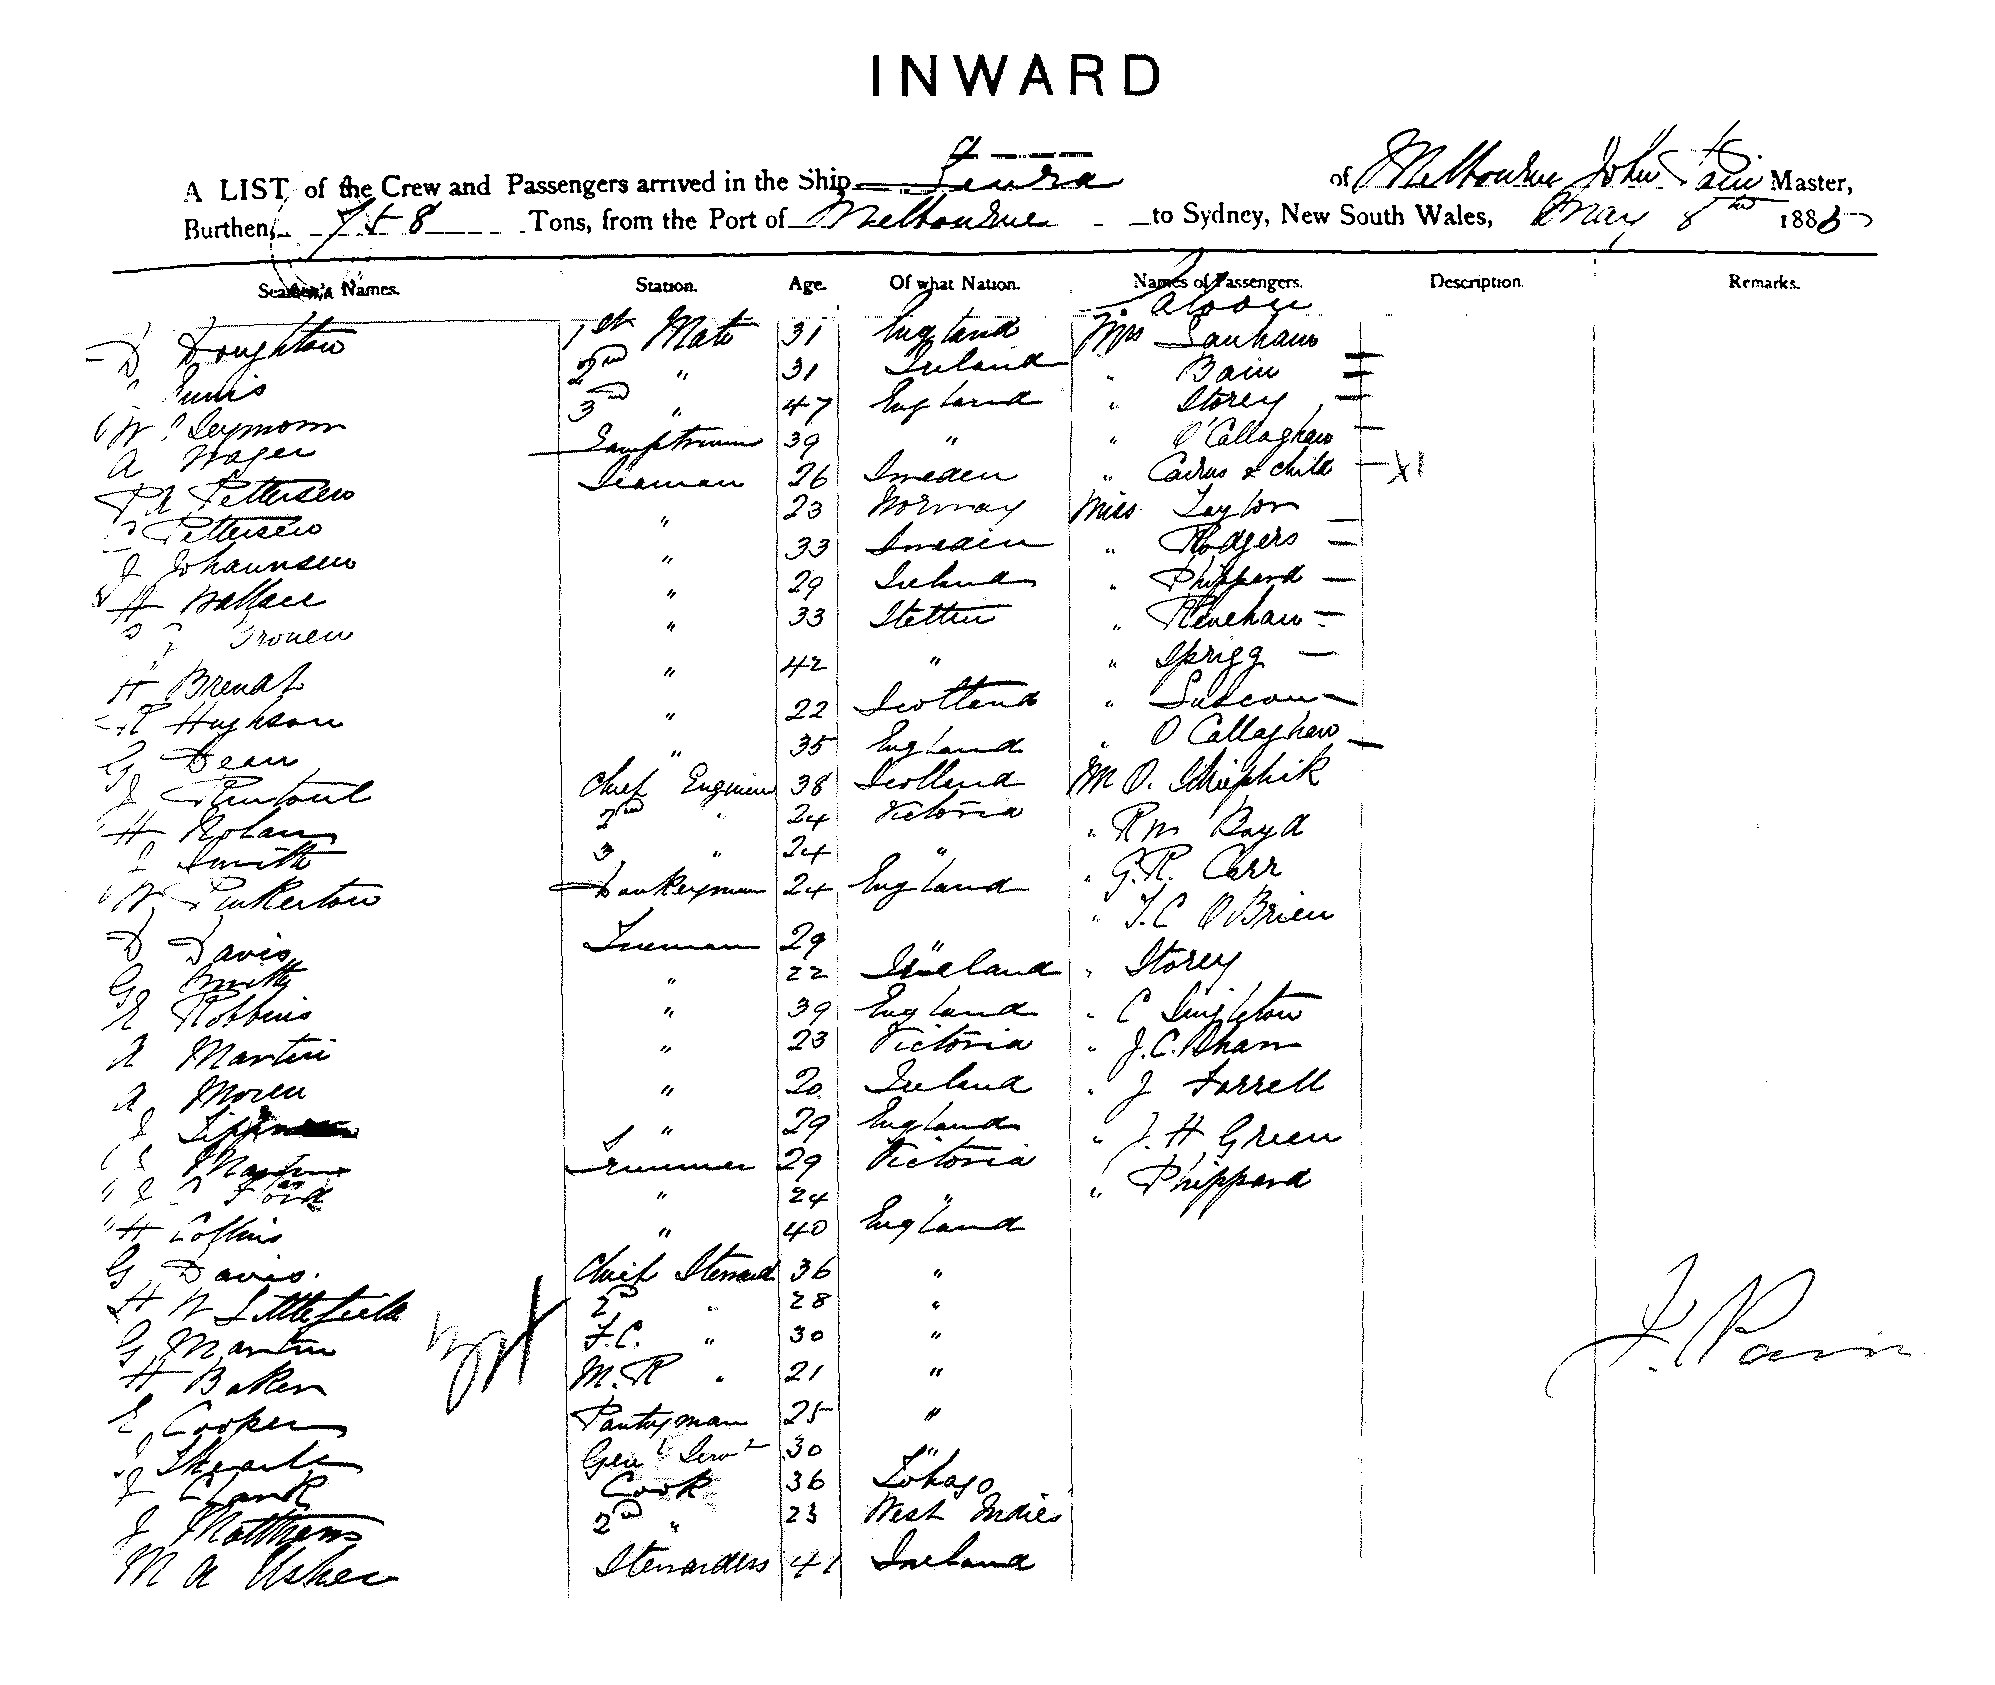 INWARD
A LIST of the Crew and Passengers arrived in the Ship of Melbourne John Pain Master,
Burthen, 758 Tons, from the Port of Melbourne to Sydney, New South Wales, May 8th 1885
Seamen's Names. Station. Age. Of what Nation. Names of Passengers. Description. Remarks.
Saloon
D Doughton 1st Mate 31 England Mrs
2nd " 31 Ireland " Bain
W Seymour 3rd " 47 England " Storey
A Wager Lamptrimmer 39 " " O'Callaghan
Pettersen Seaman 26 Sweden " Cairns & child
Pettersen " 23 Norway Miss Taylor
J Johannsen " 33 Sweden " Rodgers
H Wallace " 29 Ireland " Phippard
" 33 Stettin " Renehan
H Brendt " 42 " " Sprigg
Hughson " 22 Scotland "
G Dean " 35 England " O'Callaghan
J Rintoul Chief Engineer 38 Scotland M O.
H Nolan 2nd " 24 Victoria " R M Boyd
Smith 3 " 24 " " G.R. Carr
W Pinkerton Donkeyman 24 England " T.C O'Brien
D Davis Fireman 29 "
G Smith " 22 Ireland " Storey
E Robbins " 39 England " C Singleton
A Martin " 23 Victoria " J.C.
A Moren " 20 Ireland " J Farrell
J " 29 England " J.H Green
Martin Trimmer 29 Victoria " Phippard
J Ford " 24 "
H Collins " 40 England
G Davis. Chief Steward 36 "
H W Littlefield 2nd " 28 "
G Martin F.C. " 30 "
H Baker M.R " 21 "
E Cooper Pantryman 25 "
J Genl Servt 30 "
J Clark Cook 36 Tobago
J Matthews 2nd " 23 West Indies
M A Usher Stewardess 41 Ireland
J. Pain